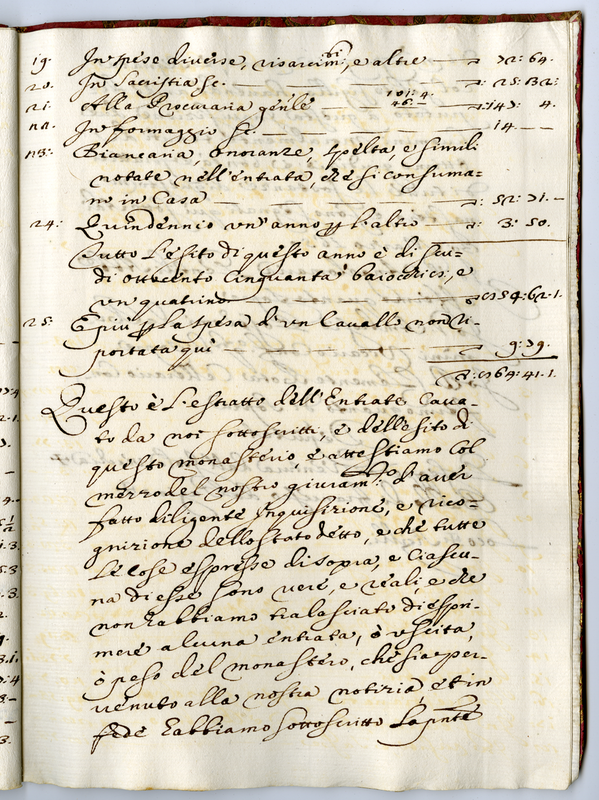 19. In spese diverse, risarcim:ti, e altre — ∂ 72: 64.
20. In Sacristia sc. — ∂: 25: 32:
21. Alla Procuraria gen'le 101: 4. 46. — ∂: 147: 4.
22. In formaggio sc. — 14. — —
23: Biancaria, onoranze, spelta, e simili
notate nell'entrata, che si consuma=
no in Casa — — — — ∂: 52: 71. —
24: Quindennio un' anno p l'altro — ∂: 3: 50.
Tutto l'esito di questo anno è di scu=
di ottocento cinquanta baiocchi, e
un quatrino — — — 854: 62. 1.
25: E più p la spesa di un Cavallo non ri-
portata qui — — — ∂ 9: 79.
∂: 864: 41. 1.
Questo è l'estratto dell'Entrate Cava-
to da noi sottoscritti, e dell'esito di
questo monasterio, e attestiamo col
mezzo del nostro giuram:to d'aver
fatto diligente Inquisizione, e rico=
gnizione dello stato detto, e che tutte
le cose espresse di sopra, e ciascu-
na di esse sono vere, e reali, e che
non habbiamo tralasciato di espri-
mere alcuna entrata, ò uscita,
ò peso del monastero, che sia per-
venuto alla nostra notizia, et in
fede habbiamo sottoscritto la pnte